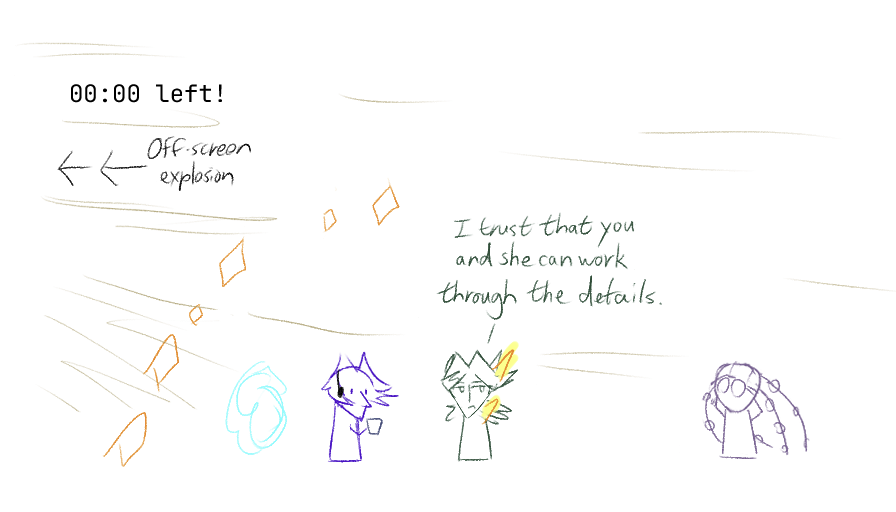 00:00 left!
Off-screen
explosion
I trust that you
and she can work
through the details.